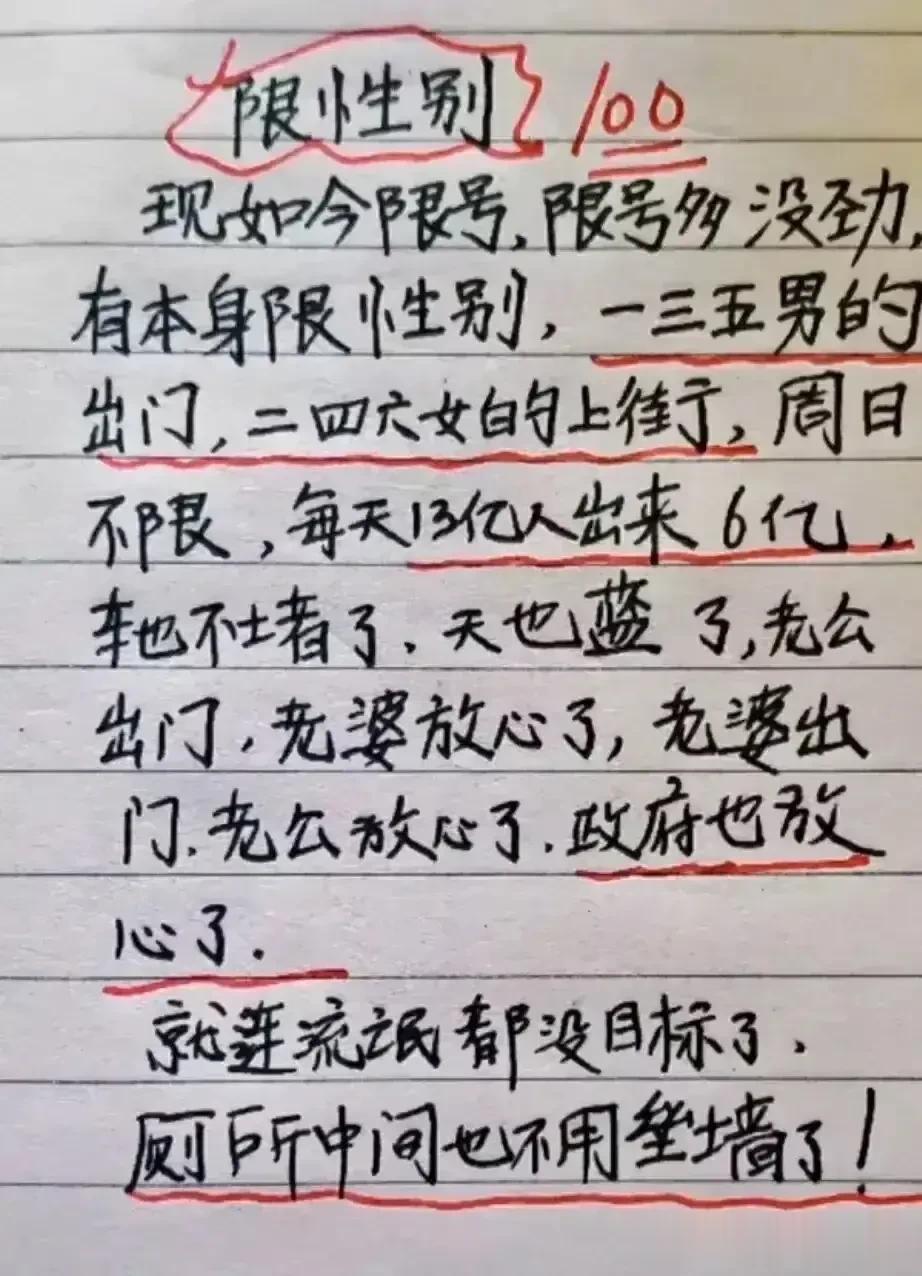 限性别 100
现如今限号,限号多没劲,
有本身限性别,一三五男的
出门,二四六女的上街,周日
不限,每天13亿人出来6亿,
车也不堵了.天也蓝了,老公
出门.老婆放心了,老婆出
门.老公放心了.政府也放
心了.
就连流氓都没目标了.
厕所中间也不用垒墙了!